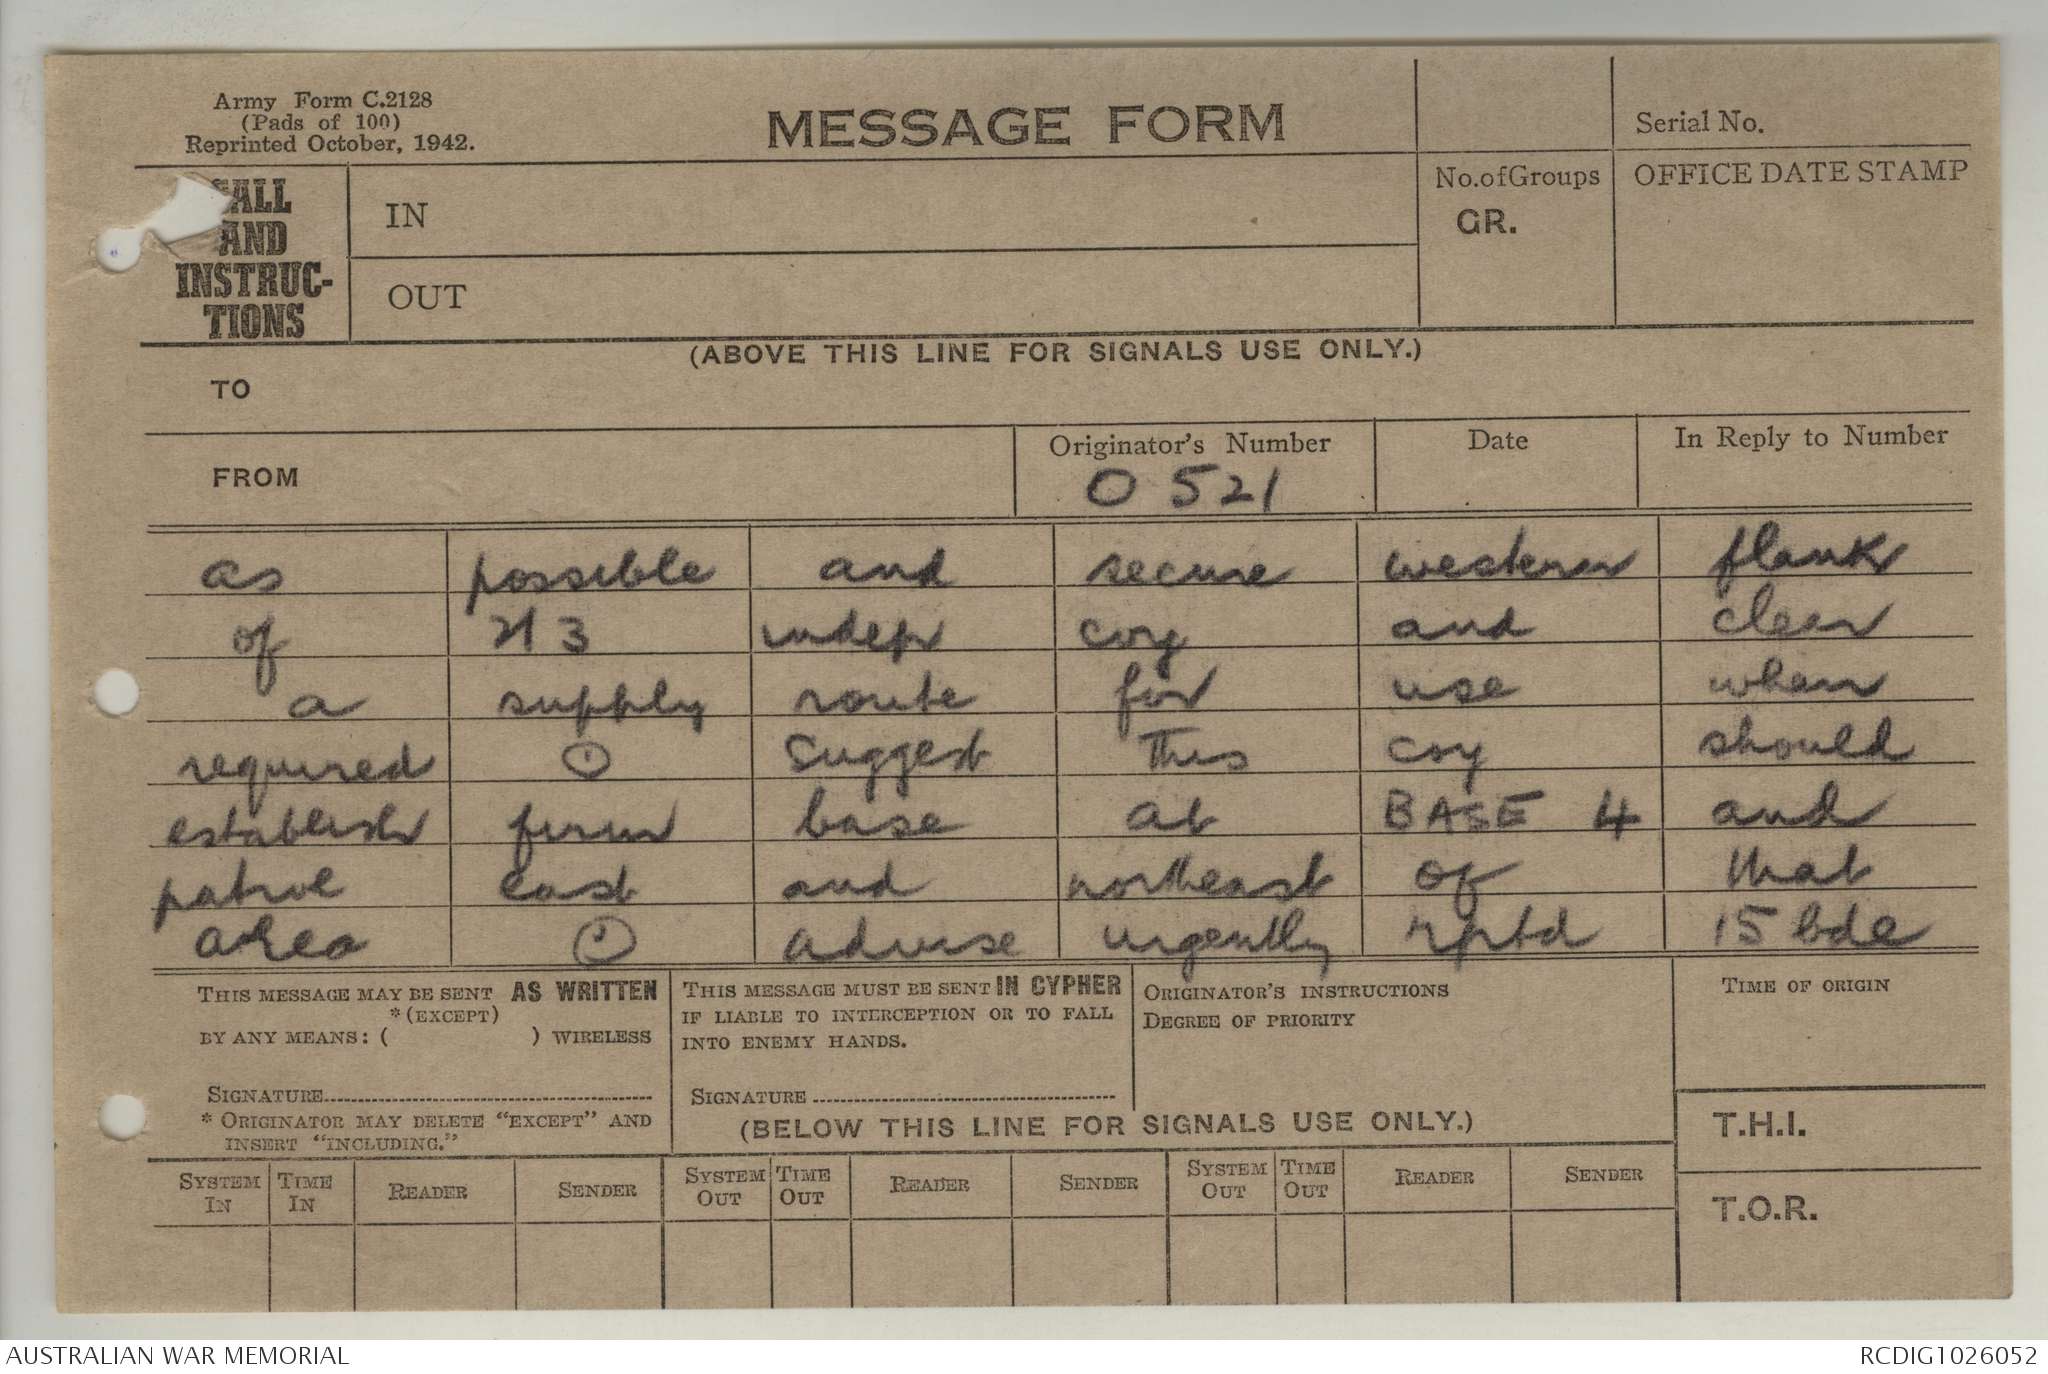 Army Form C.2128
(Pads of 100)
Reprinted October, 1942.
MESSAGE FORM
Serial No.
ALL
AND
INSTRUC-
TIONS
IN
OUT
No.ofGroups
GR.
OFFICE DATE STAMP
(ABOVE THIS LINE FOR SIGNALS USE ONLY.)
TO
FROM
Originator's Number
O 521
Date
In Reply to Number
as possible and secure western flank
of 2/3 indep coy and clear
a supply route for use when
required (.) Suggest this coy should
establish firm base at BASE 4 and
patrol east and northeast of that
area (.) advise urgently rptd 15 bde
THIS MESSAGE MAY BE SENT AS WRITTEN
*(EXCEPT)
BY ANY MEANS: ( ) WIRELESS
SIGNATURE
* ORIGINATOR MAY DELETE "EXCEPT" AND
INSERT "INCLUDING."
THIS MESSAGE MUST BE SENT IN CYPHER
IF LIABLE TO INTERCEPTION OR TO FALL
INTO ENEMY HANDS.
SIGNATURE
ORIGINATOR'S INSTRUCTIONS
DEGREE OF PRIORITY
TIME OF ORIGIN
(BELOW THIS LINE FOR SIGNALS USE ONLY.)
T.H.I.
T.O.R.
SYSTEM IN
TIME IN
READER
SENDER
SYSTEM OUT
TIME OUT
READER
SENDER
SYSTEM OUT
TIME OUT
READER
SENDER
AUSTRALIAN WAR MEMORIAL
RCDIG1026052